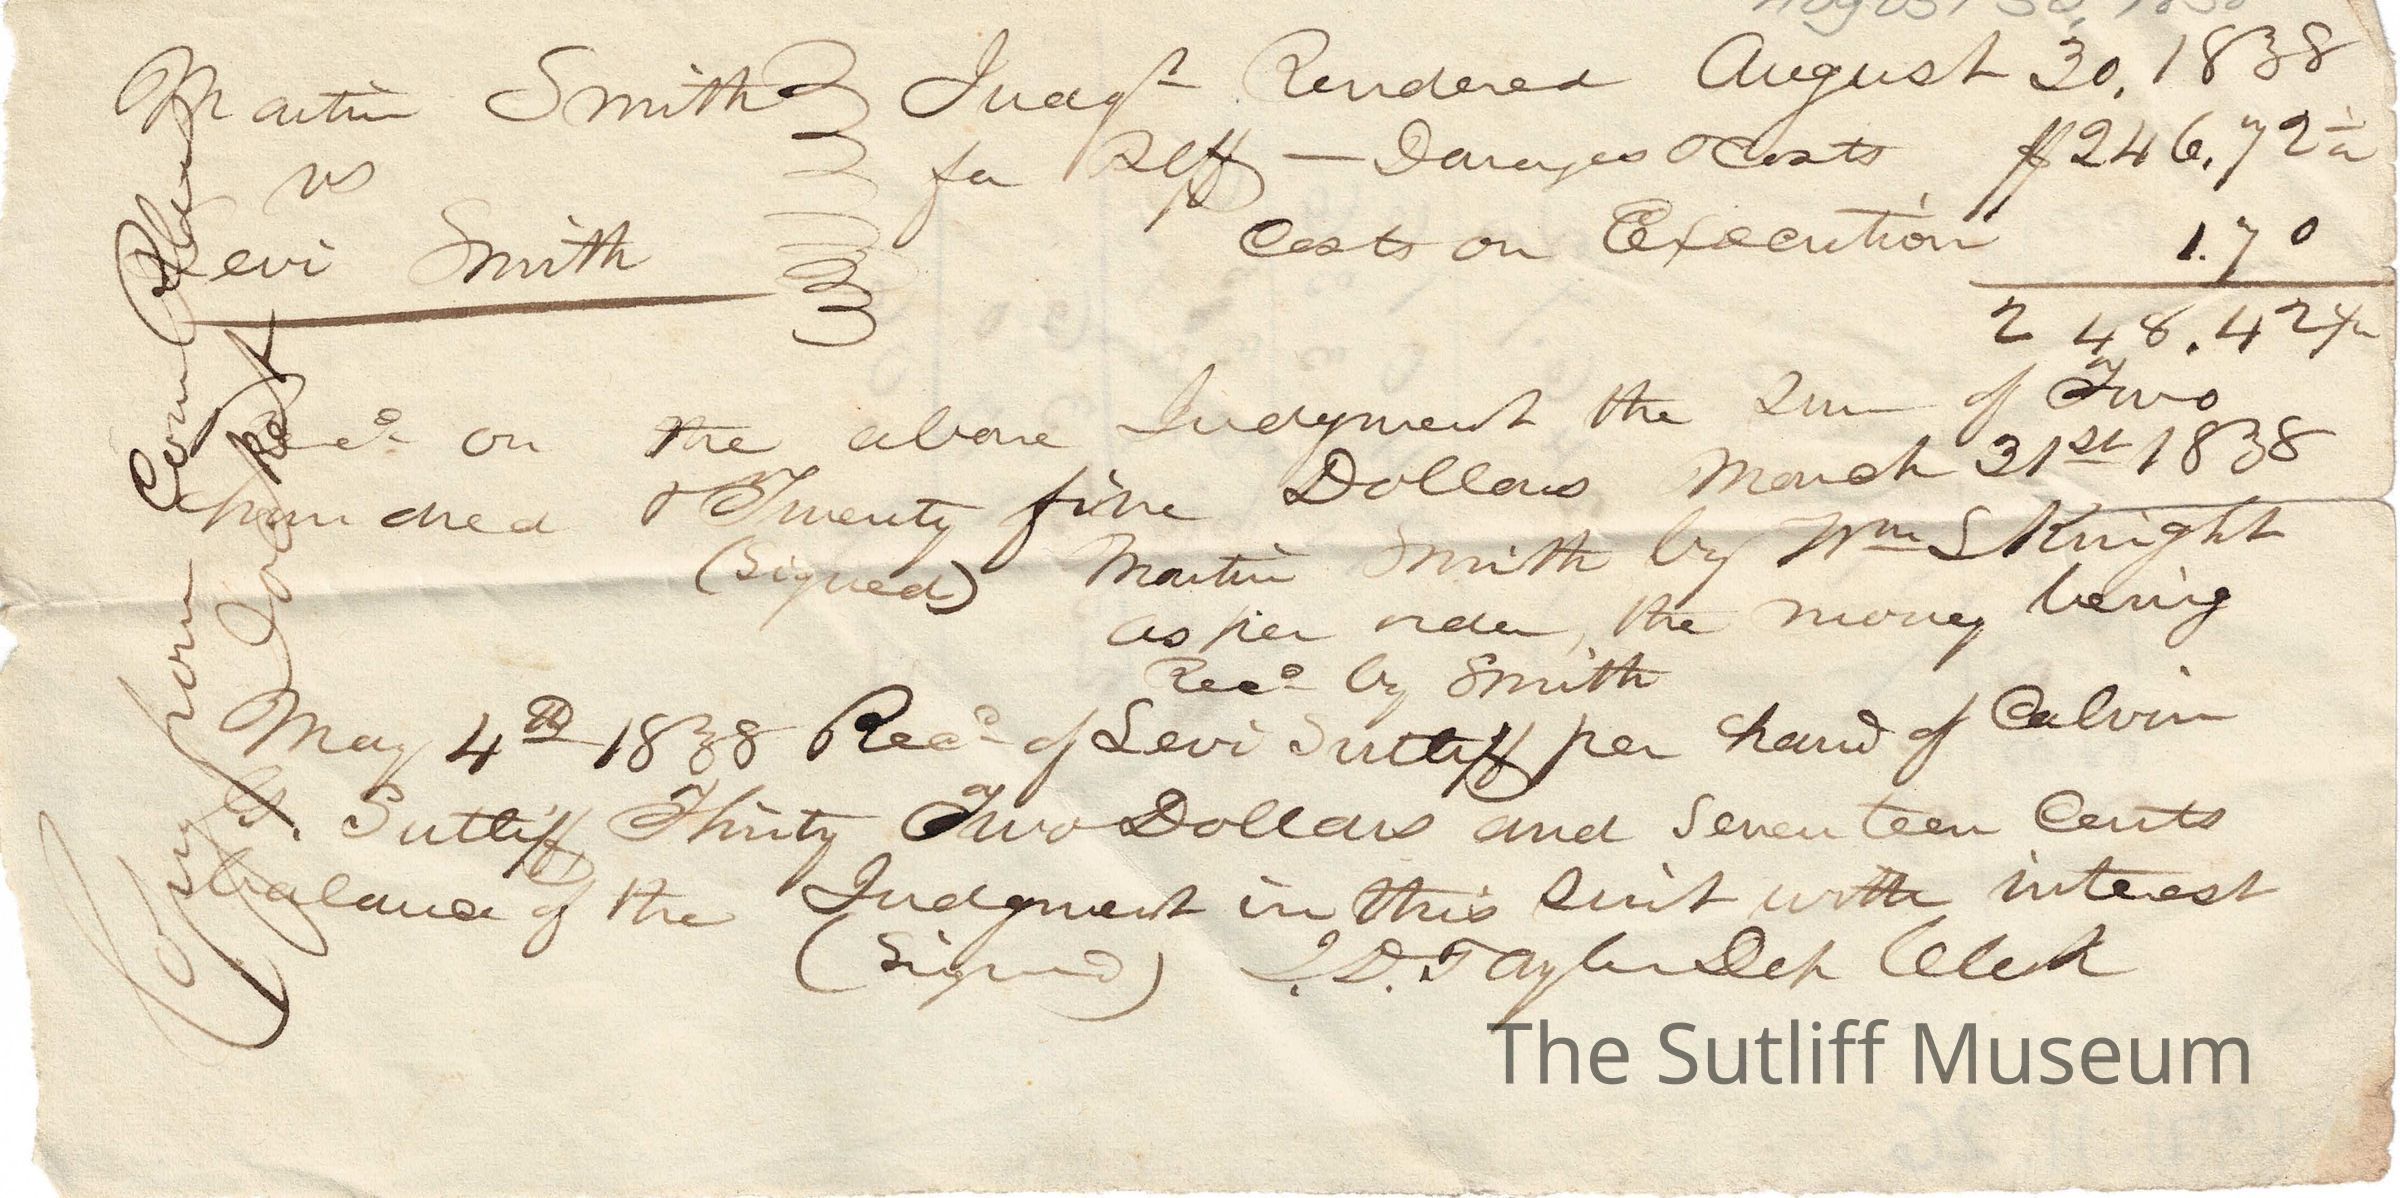 August 30, 1838
Martin Smith Judgt Rendered August 30, 1838
vs for Plff — Damages & Costs $246.72½
Levi Smith Costs on Execution 1.70
248.42½
Recd on the above Judgment the Sum of Two
hundred & Twenty five Dollars March 31st 1838
(Signed) Martin Smith by Wm S Knight
as per order, the money being
Recd by Smith
May 4th 1838 Recd of Levi Sutliff per hand of Calvin
G. Sutliff Thirty Two Dollars and Seventeen Cents
balance of the Judgment in this Suit with interest
(Signed) D. Taylor Dep Clerk
Copy from Com Pleas
Docket
The Sutliff Museum